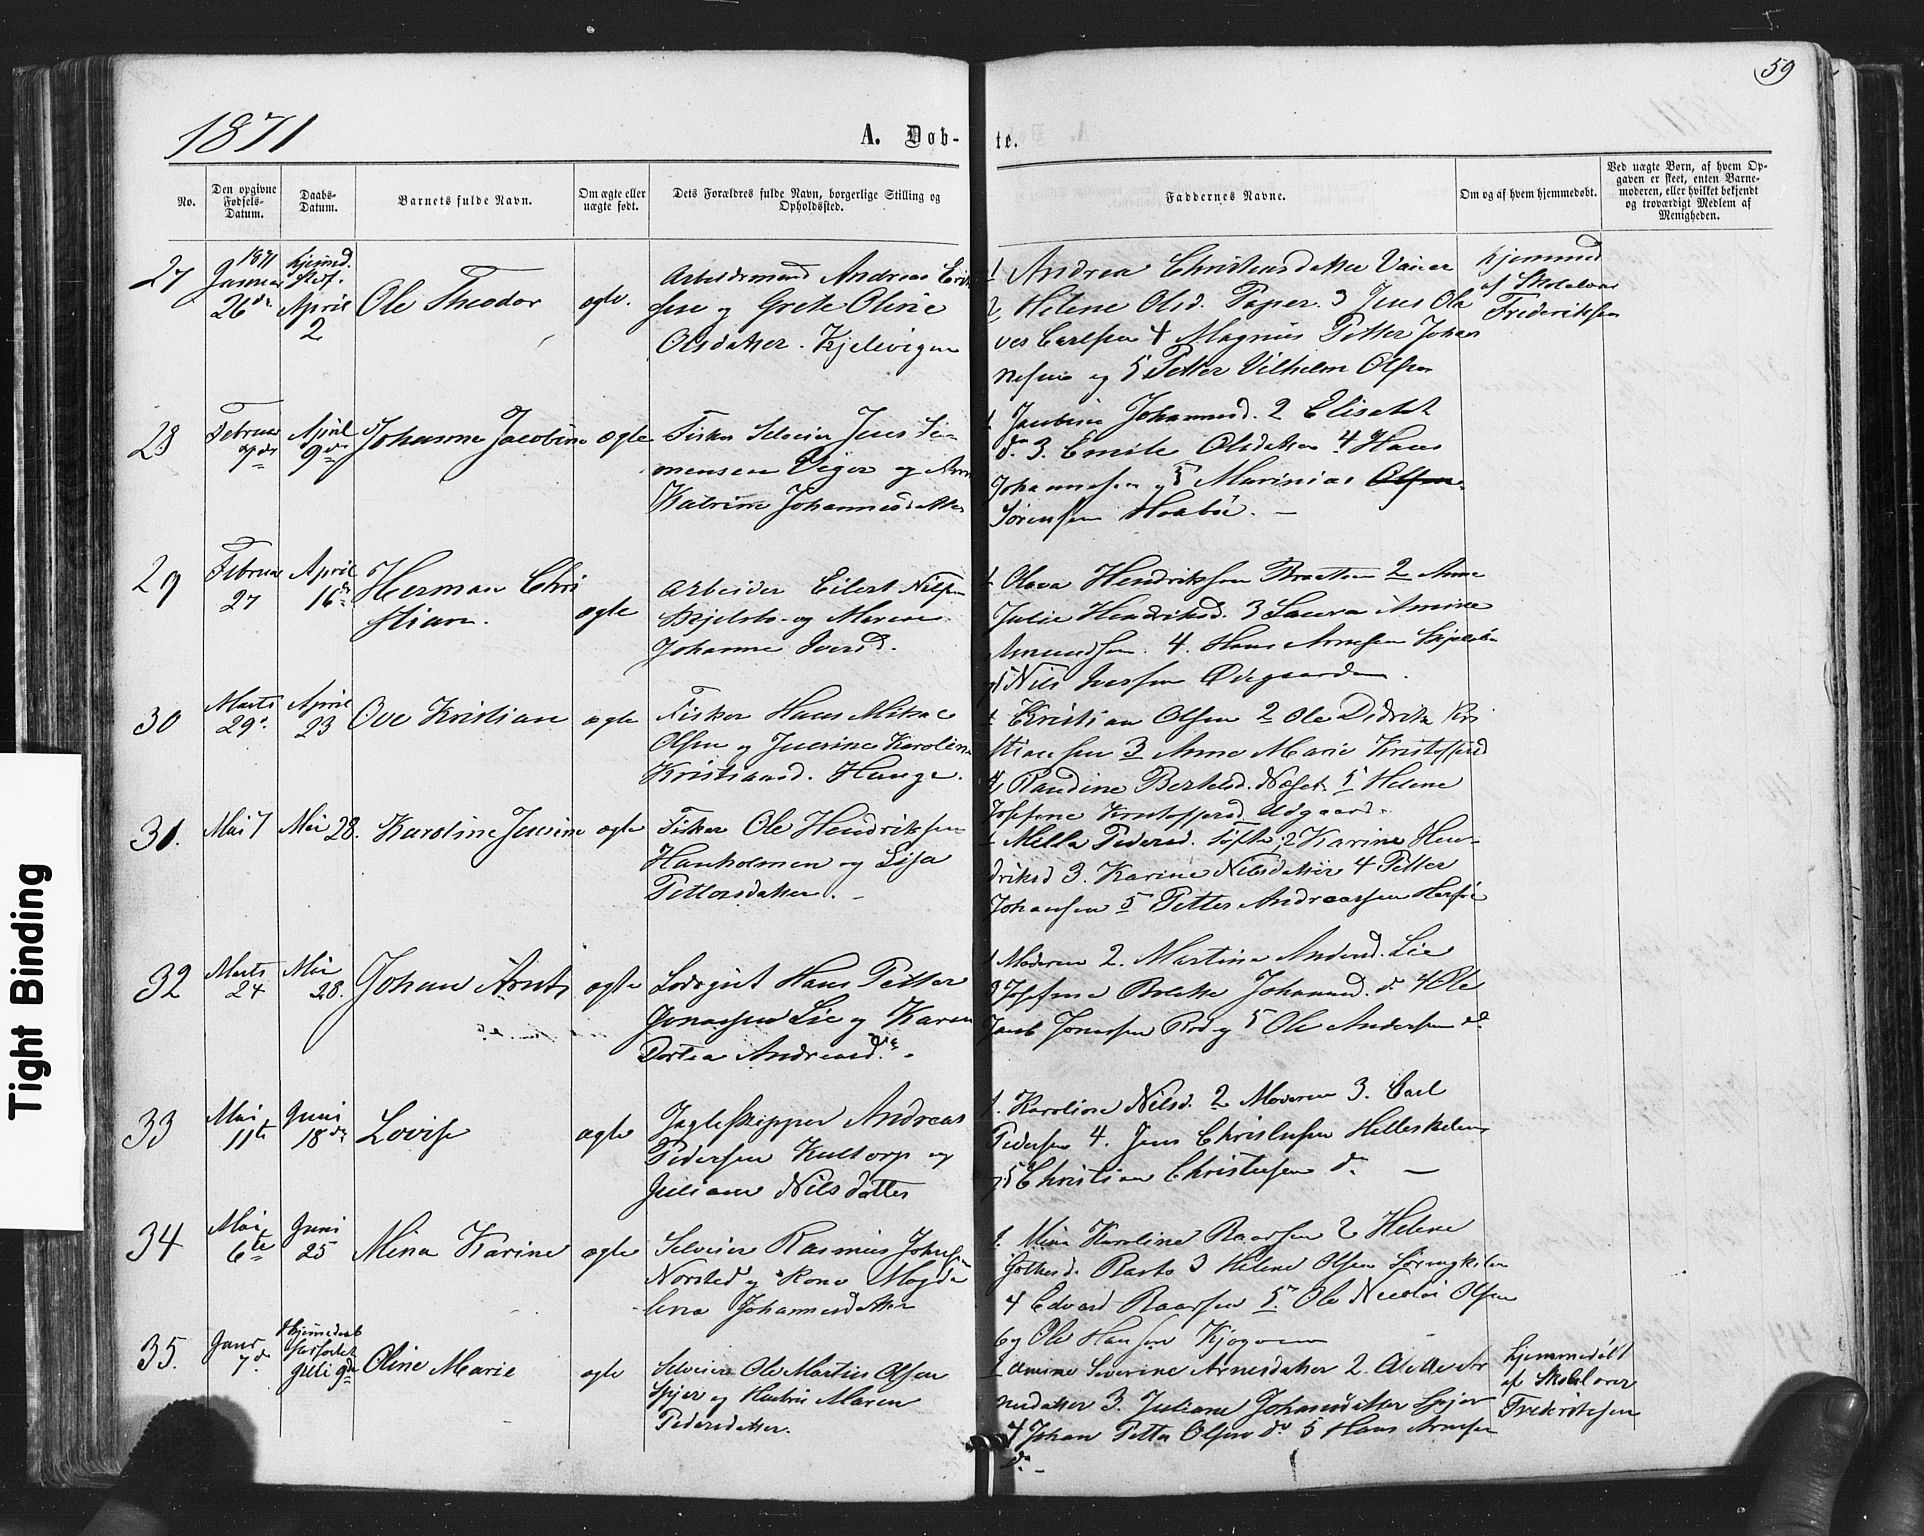 59
1871
A. Døb-
te.
No.
Den opgivne Fødsels-Datum.
Daabs-Datum.
Barnets fulde Navn.
Om ægte eller uægte født.
Dets Forældres fulde Navn, borgerlige Stilling og Opholdssted.
Faddernes Navne.
Om og af hvem hjemmedøbt.
Ved uægte Børn, af hvem Op-
gaven er skeet, enten Barne-
moderen, eller hvilket bekjendt
og troværdigt Medlem af
Menigheden.
27
1871
Januar
26de
April
2
Ole Theodor
ægte.
Arbeidsmand Andreas Erik
sen og Grete Olivie
Olsdatter. Kjelvigen
1 Andrea Christensdatter
2 Helene Olsd. 3 Jens Ola
ves Carlsen 4 Magnus Petter Johan
nesen og 5 Petter Vilhelm Olsen
hjemmed
af Skolelærer
Frederiksen
28
Februar
April
9de
Johanne Jacobine
ægte
Fisker Selveier Jens Si-
mensen og Ann
Katrine Johannesdatter
1 Jacobine Johannesd. 2 Elisabet
do 3. Emilie Olsdatter 4 Hans
Johannesen og 5 Marinius Olsen
Sørensen
29
Februar
27
April
16de
Herman Chri
stian.
ægte
Arbeider Eilert Nilsen
Skjelsbo og Maren
Johanne Iversd.
1 Olava Hendriksen Braatten 2 Anne
Julie Hendriksd. 3 Laura Amine
Amundsen. 4. Hans Arnesen
5 Nils Iversen Ødegaarden.
30
Marts
29.
April
23
Ove Kristian
ægte
Fisker Hans Mikae
Olsen og Jensine Karoline
Kristiansd. Hauge.
1 Kristian Olsen 2 Ole Didrik Kri
stiansen 3 Anne Marie Kristoffersd
4 Randine Bertelsd. Næset 5 Helene
Josefine Kristoffersd. Udgaard.
31.
Mai 7
Mai 28.
Karoline Jensine
ægte
Fisker Ole Hendriksen
Hankolmen og Lisa
Pettersdatter.
1 Milla Pedersd. Tofte, 2 Karine Hen-
driksd 3. Karine Nilsdatter 4 Petter
Johansen 5 Petter Andreassen
32
Marts
24
Mai
28.
Johan Arnt
ægte
Lodsgut Hans Petter
Jonassen Lie og Karen
Dortea Andreasd.
1 Moderen 2. Martine Andersd. Lie
3 Josefine Bolette Johannesd. do 4 Ole
Jacob Jonassen Rød og 5 Ole Andersen do
33
Mai
11te
Juni
18de
Lovise
ægte
Jagteskipper Andreas
Pedersen Kultorp og
Juliane Nilsdatter
1. Karoline Nilsd. 2 Moderen 3. Carl
Pedersen 4. Jens Christensen Helleskilen
5 Christian Christensen do.
34
Mai
6te
Juni
25
Mina Karine
ægte
Selveier Rasmus Johnsen
Norsted og Kone Magda
lena Johannesdatter
1. Mina Karoline Raarsen 2 Helene
3 Helene Olsen
4 Edvard Raarsen 5. Ole Nicolai Olsen
6 og Ole Hansen Kjøgoen
35.
Januar
7de
Hjemmedøbt
Juli 9de
Oline Marie
ægte
Selveier Ole Martin Olsen
Spjør og Hustru Maren
Pedersdatter.
1 Amine Severine Arnesdatter 2. Olette Ar
nesdatter 3. Juliane Johannesdatter Spjør
4 Johan Petter Olsen do 5 Hans Arnesen
do.
hjemmedøbt
af Skolelærer
Frederiksen
Tight Binding